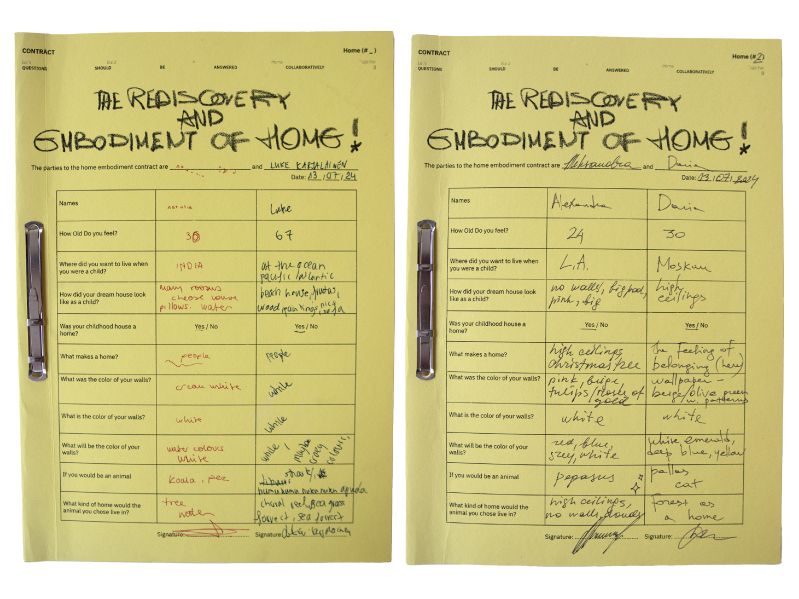 CONTRACT
Home (#_)
QUESTIONS SHOULD BE ANSWERED COLLABORATIVELY
THE REDISCOVERY
AND
EMBODIMENT OF HOME!
The parties to the home embodiment contract are and LUKE
Date: 13.07.24
Names Luke
How Old Do you feel? 30 67
Where did you want to live when you were a child? INDIA at the ocean pacific/atlantic
How did your dream house look like as a child? many rooms choose house pillows. water beach house,
Was your childhood house a home? Yes / No Yes / No
What makes a home? people people
What was the color of your walls? cream white white
What is the color of your walls? white white
What will be the color of your walls? water colours white white, maybe crazy colours,
If you would be an animal koala,
What kind of home would the animal you chose live in? tree water
Signature: Signature:
CONTRACT
Home (#2)
QUESTIONS SHOULD BE ANSWERED COLLABORATIVELY
THE REDISCOVERY
AND
EMBODIMENT OF HOME!
The parties to the home embodiment contract are Aleksandra and Daria
Date: 13.07.2024
Names Alexandra Daria
How Old Do you feel? 24 30
Where did you want to live when you were a child? L.A. Moskau
How did your dream house look like as a child? no walls, big pool, pink, big high ceilings
Was your childhood house a home? Yes / No Yes / No
What makes a home? high ceilings, christmas tree the feeling of belonging (here)
What was the color of your walls? pink, beige, tulips / of gold wallpaper - beige/olive green w. patterns
What is the color of your walls? white white
What will be the color of your walls? red, blue, grey, white white emerald, deep blue, yellow
If you would be an animal pegasus pallas cat
What kind of home would the animal you chose live in? high ceilings, no walls, clouds forest as a home
Signature: Signature: